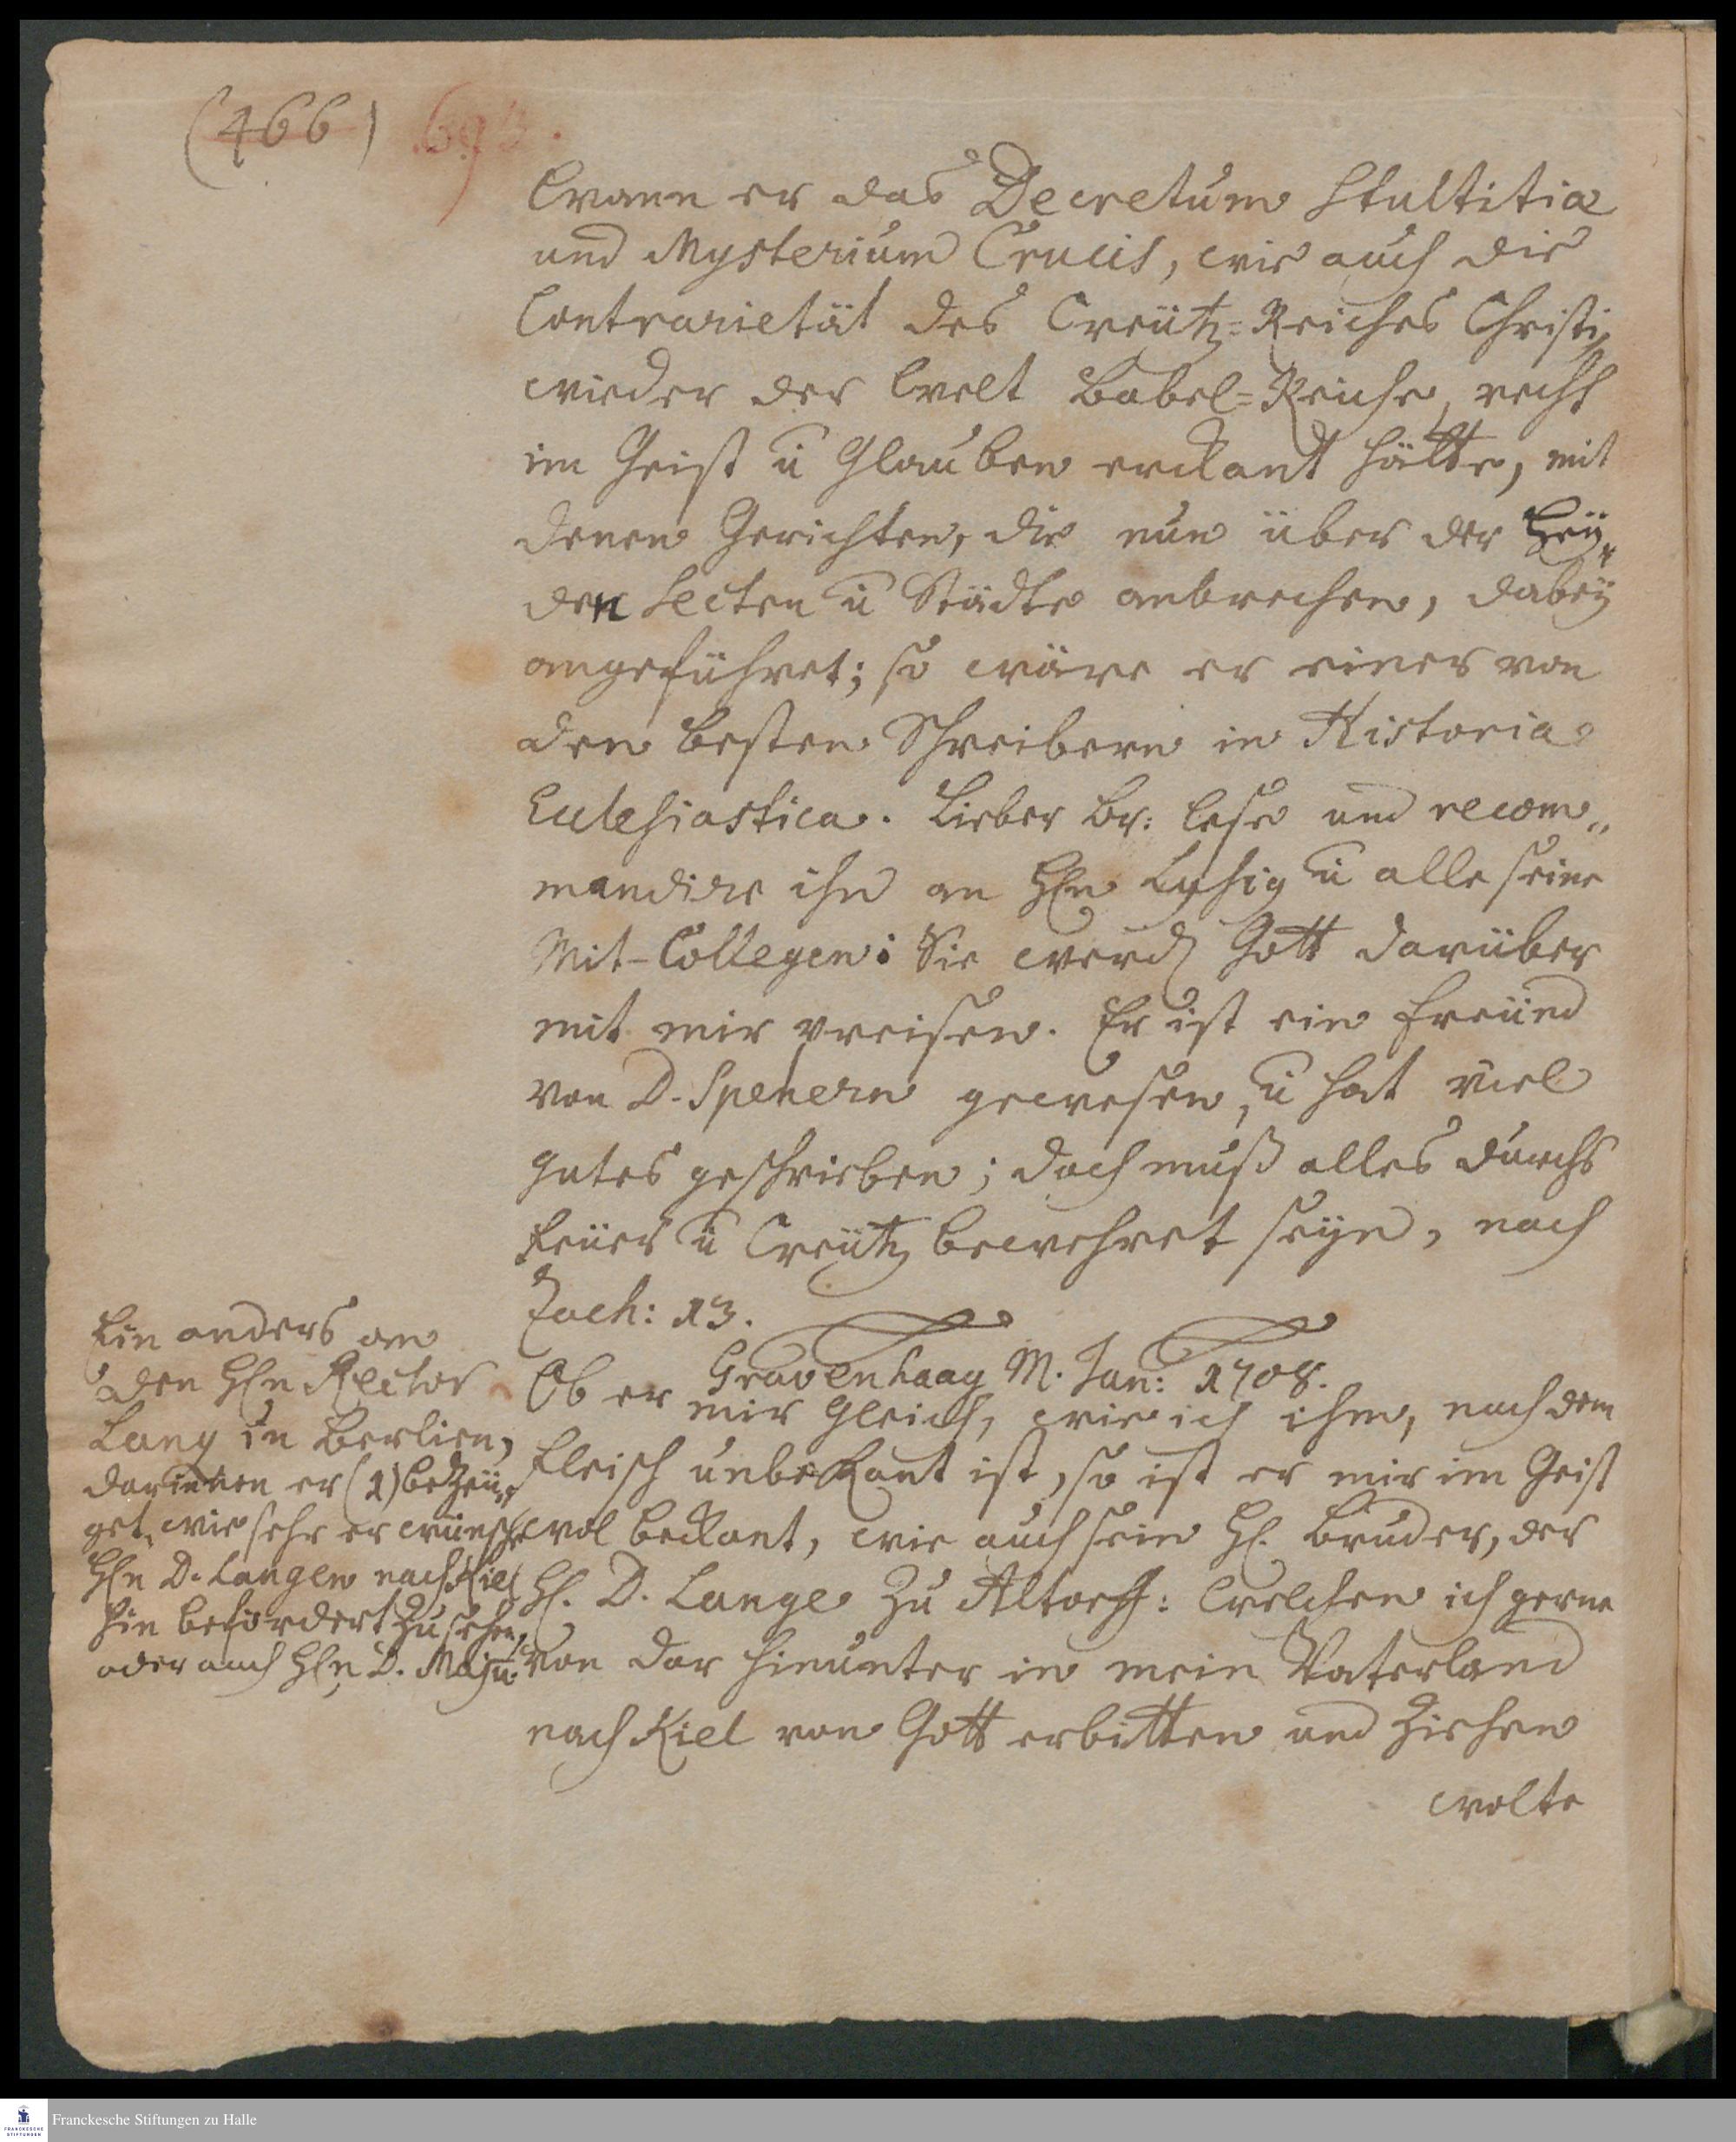 (466)
Wann er das Decretum Stultitiæ
und Mysterium Crucis, wie auch die
Contrarietät des Creütz=Reiches Christi,
wieder der Welt Babel=Reiche, recht
im Geist ū Glauben erckant hätte, mit
denen Gerichten, die nun über der Hey„
den Secten ū Städte anbrechen, dabey
angeführet; so wäre er einer von
den besten Schreibern in Historia
Ecclesiastica. Lieber Br: lese und recom„
mandire ihn an Hln Lysig ū alle seine
Mit-Collegen: Sie werd Gott darüber
mit mir preisen. Er ist ein Freünd
von D. Spenern gewesen, ū hat viel
gutes geschrieben; doch muß alles durchs
Feüer ū Creütz bewehret seyn, nach
Zach: 13.
Ein anders an
den Hln Rector
Lang in Berlien,
darinnen er (1) beZeü„
get, wie sehr er wünsche
Hln D. Langen nach Kiel
hin befordert Zu sehen,
oder auch Hln D. Maju.
Gravenhaag M. Jan: 1708.
Ob er mir gleich, wie ich ihm, nach dem
Fleisch unbekant ist, so ist er mir im Geist
wol beckant, wie auch sein Hl. Bruder, der
Hl. D. Lange Zu Altorff: Welchen ich gerne
von dar hinunter in mein Vaterland
nach Kiel von Gott erbitten und Ziehen
wolte
Franckesche Stiftungen zu Halle
FRANCKESCHE
STIFTUNGEN